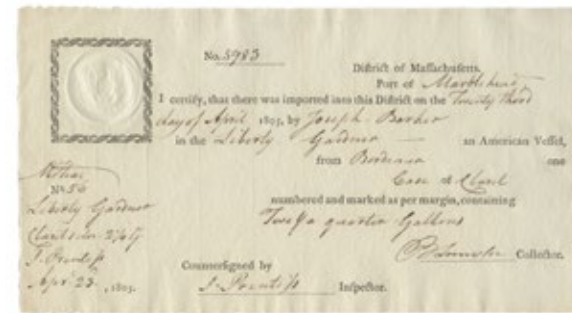 No. 5983
District of Massachusetts.
Port of Marblehead
I certify, that there was imported into this District on the Twenty third
day of April 1805, by Joseph Barker
in the Liberty Gardner an American Vessel,
from Bordeaux one
Case of Claret
numbered and marked as per margin, containing
Two & a quarter Gallons
Collector.
Countersigned by
J. Prentiss Inspector.
No. 56
Liberty Gardner
Claret 2 1/4 G
J. Prentiss
Apr. 23, 1805.